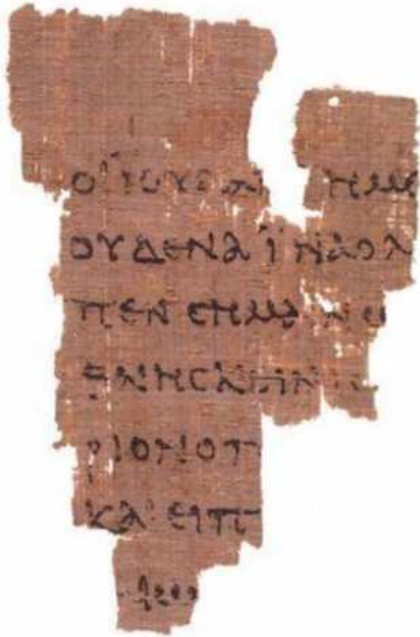 ΟΙ ΪΟΥΔΑΙ ΗΜ
ΟΥΔΕΝΑ ΪΝΑ Ο Λ
ΠΕΝ ϹΗΜΑΙΝΩ
ΘΝΗϹΚΕΙΝ ΙϹ
ΡΙΟΝ Ο Π
ΚΑΙ ΕΙΠ